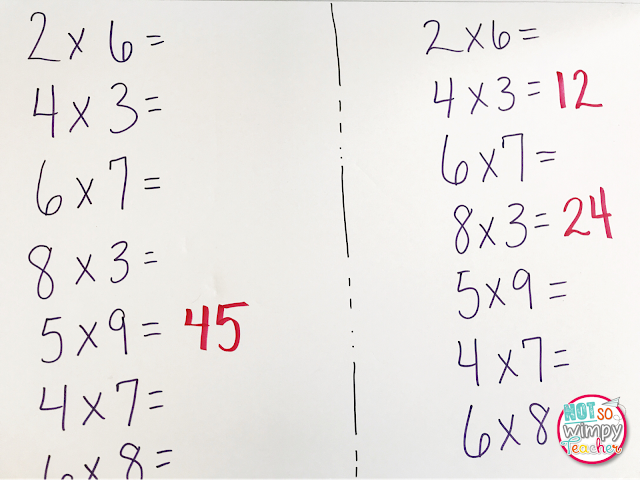 2 x 6 =
4 x 3 =
6 x 7 =
8 x 3 =
5 x 9 = 45
4 x 7 =
6 x 8 =
2 x 6 =
4 x 3 = 12
6 x 7 =
8 x 3 = 24
5 x 9 =
4 x 7 =
6 x 8
NOT SO
Wimpy
Teacher